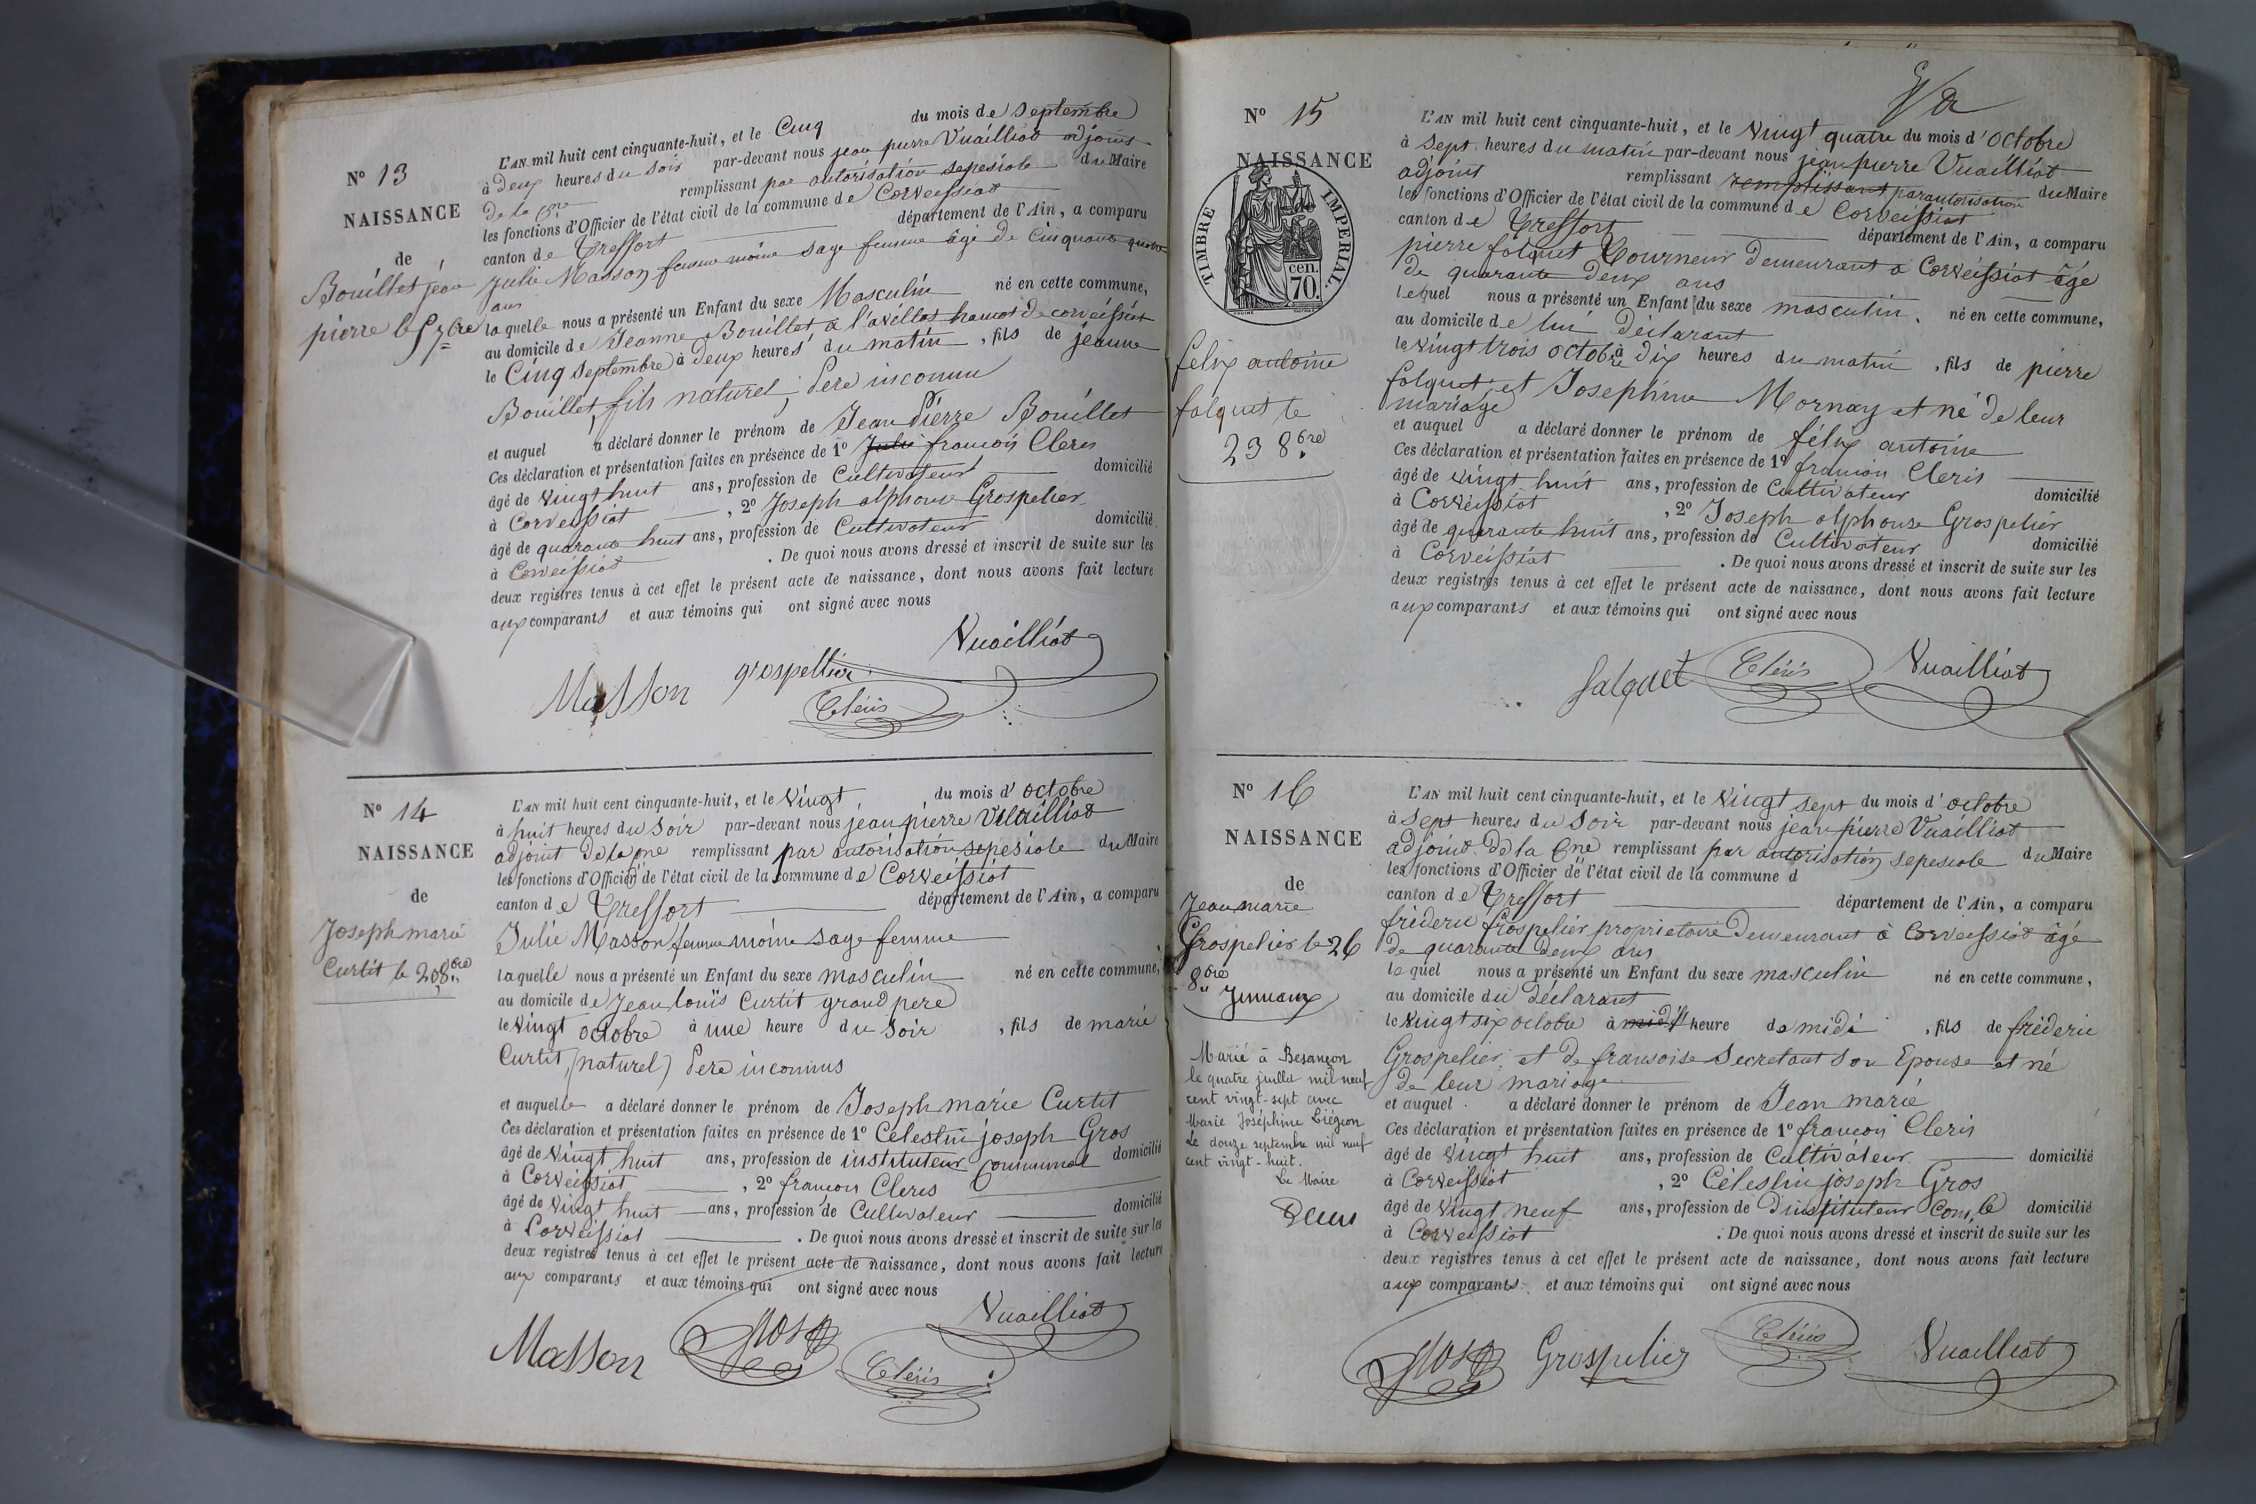 N° 13
NAISSANCE
de
Bouillet jéan
pierre le 5 7bre
L'AN mil huit cent cinquante-huit, et le Cinq du mois de Septembre
à Deux heures du soir par-devant nous jean pierre Vuailliat adjoint
de la Cne remplissant par autorisation sepesiale du Maire
les fonctions d'Officier de l'état civil de la commune de Corveissiat
canton de Treffort département de l'Ain, a comparu
Julie Masson femme moine sage femme âgé de Cinquante quatre
ans
laquelle nous a présenté un Enfant du sexe Masculin né en cette commune,
au domicile de Jeanne Bouillet à l'avellas hamot de corveissiat
le Cinq Septembre à Deux heures du matin, fils de jéanne
Bouillet, fils naturel, Pere inconnu
et auquel a déclaré donner le prénom de Jean Pierre Bouillet
Ces déclaration et présentation faites en présence de 1° Julie françois Cleris
âgé de Vingt huit ans, profession de Cultivateur domicilié
à Corveissiat, 2° Joseph alphonse Grospelier
âgé de quarante huit ans, profession de Cultivateur domicilié
à Corveissiat. De quoi nous avons dressé et inscrit de suite sur les
deux registres tenus à cet effet le présent acte de naissance, dont nous avons fait lecture
aux comparants et aux témoins qui ont signé avec nous
Vuailliat
Masson grospellier
Cléris
N° 14
NAISSANCE
de
Joseph marie
Curtit le 20 8bre
L'AN mil huit cent cinquante-huit, et le Vingt du mois d'octobre
à huit heures du Soir par-devant nous jéan pierre Vuailliat
adjoint de la Cne remplissant par autorisation sepésiale du Maire
les fonctions d'Officier de l'état civil de la commune de Corveissiat
canton de Treffort département de l'Ain, a comparu
Julie Masson femme moine sage femme
laquelle nous a présenté un Enfant du sexe masculin né en cette commune,
au domicile de Jean louis Curtit grand pere
le Vingt octobre à une heure du Soir, fils de marie
Curtit, (naturel) Pere inconnus
et auquelle a déclaré donner le prénom de Joseph marie Curtit
Ces déclaration et présentation faites en présence de 1° Célestin joseph Gros
âgé de Vingt huit ans, profession de instituteur Communal domicilié
à Corveissiat, 2° françois Cleres
âgé de Vingt huit ans, profession de Cultivateur domicilié
à Corveissiat. De quoi nous avons dressé et inscrit de suite sur les
deux registres tenus à cet effet le présent acte de naissance, dont nous avons fait lecture
aux comparants et aux témoins qui ont signé avec nous
Vuailliat
Masson Gros
Cléris
N° 15
NAISSANCE
TIMBRE IMPERIAL.
cen.
70.
félix antoine
falquet le
23 8bre
L'AN mil huit cent cinquante-huit, et le Vingt quatre du mois d'octobre
à Sept heures du matin par-devant nous jéan pierre Vuailliat
adjoint remplissant remplissant par autorisation du Maire
les fonctions d'Officier de l'état civil de la commune de Corveissiat
canton de Treffort département de l'Ain, a comparu
pierre falquet Tourneur Demeurant à Corveissiat âgé
de quarante deux ans
lequel nous a présenté un Enfant du sexe masculin, né en cette commune,
au domicile de lui déclarant
le Vingt trois octobre à dix heures du matin, fils de pierre
falquet et Josephine Mornay et né de leur
mariage
et auquel a déclaré donner le prénom de félix antoine
Ces déclaration et présentation faites en présence de 1° françois Cleris
âgé de Vingt huit ans, profession de Cultivateur domicilié
à Corveissiat, 2° Joseph alphonse Grospelier
âgé de quarante huit ans, profession de Cultivateur domicilié
à Corveissiat. De quoi nous avons dressé et inscrit de suite sur les
deux registres tenus à cet effet le présent acte de naissance, dont nous avons fait lecture
aux comparants et aux témoins qui ont signé avec nous
falquet Cléris Vuailliat
N° 16
NAISSANCE
de
Jean marie
Grospelier le 26
8bre
Jumaux
Marié à Besançon
le quatre juillet mil neuf
cent vingt-sept avec
Marie Joséphine Liégeon
Le douze septembre mil neuf
cent vingt-huit.
Le Maire
L'AN mil huit cent cinquante-huit, et le Vingt sept du mois d'octobre
à Sept heures du Soir par-devant nous jean pierre Vuailliat
adjoint de la Cne remplissant par autorisation sepesiale du Maire
les fonctions d'Officier de l'état civil de la commune d
canton de Treffort département de l'Ain, a comparu
fréderic Grospelier proprietaire Demeurant à Corveissiat âgé
de quarante deux ans
lequel nous a présenté un Enfant du sexe masculin né en cette commune,
au domicile du Déclarant
le Vingt six octobre à midi heure de midi, fils de fréderic
Grospelier, et de fransoise Secretant son Epouse et né
de leur mariage
et auquel a déclaré donner le prénom de Jean marie
Ces déclaration et présentation faites en présence de 1° françois Cleris
âgé de Vingt huit ans, profession de Cultivateur domicilié
à Corveissiat, 2° Célestin joseph Gros
âgé de Vingt neuf ans, profession de D'instituteur Com.le domicilié
à Corveissiat. De quoi nous avons dressé et inscrit de suite sur les
deux registres tenus à cet effet le présent acte de naissance, dont nous avons fait lecture
aux comparants et aux témoins qui ont signé avec nous
Gros Grospelier Cléris Vuailliat